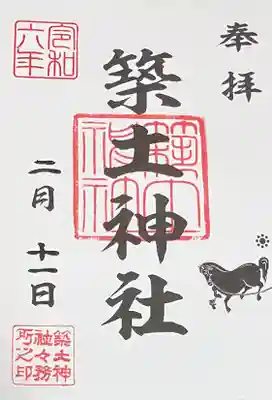 奉拝
築土神社
築土神社
令和六年
二月十一日
築土神社々務所之印